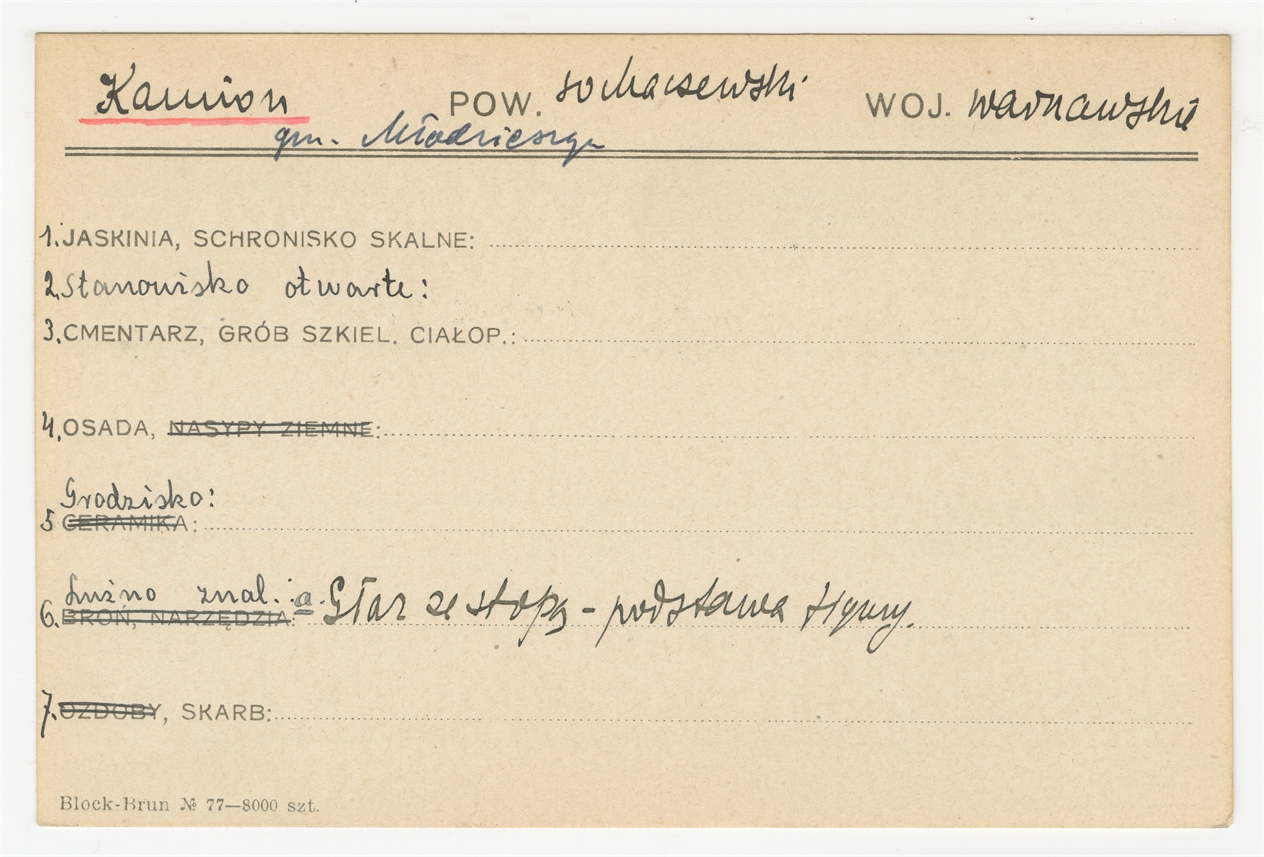 Kamion POW. sochaczewski WOJ. warszawskie
gm. Młodzieszyn
1. JASKINIA, SCHRONISKO SKALNE:
2. Stanowisko otwarte:
3. CMENTARZ, GRÓB SZKIEL. CIAŁOP.:
4. OSADA, NASYPY ZIEMNE:
Grodzisko:
5 CERAMIKA:
Luźno znal.: a. Głaz ze stopą - podstawa figury.
6. BROŃ, NARZĘDZIA:
7. OZDOBY, SKARB:
Block-Brun № 77—8000 szt.